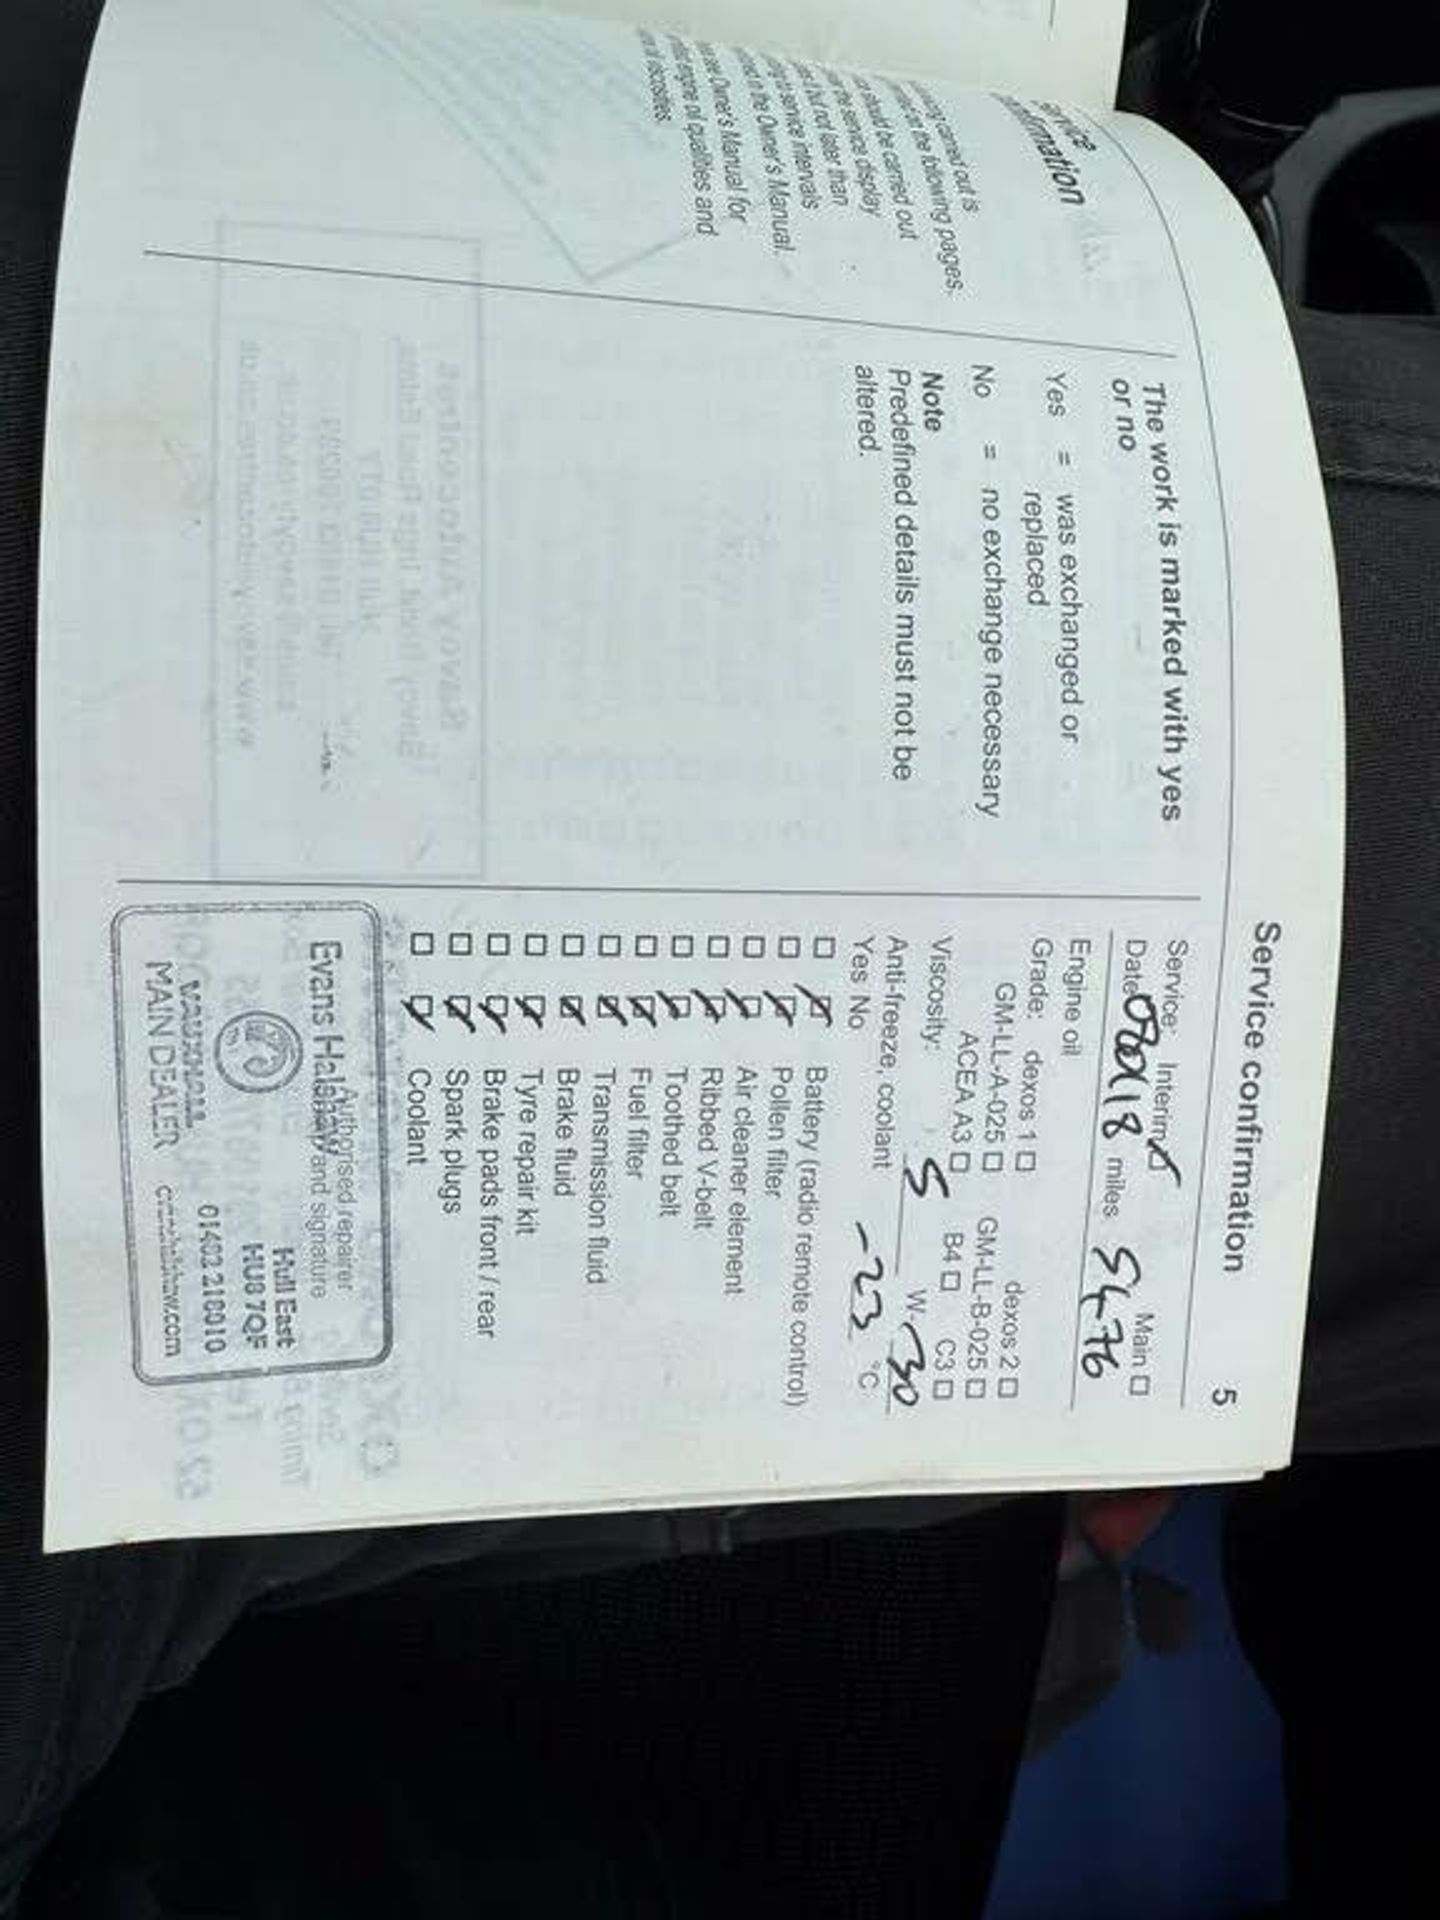 Service confirmation 5
carried out is
the following pages.
should be carried out
the service display
but not later than
service intervals
in the Owner's Manual.
Owner's Manual for
engine oil qualities and
viscosities.
The work is marked with yes
or no
Yes = was exchanged or
replaced
No = no exchange necessary
Note
Predefined details must not be
altered.
Service: Interim Main
Date 18 miles 5476
Engine oil
Grade: dexos 1 dexos 2
GM-LL-A-025 GM-LL-B-025
ACEA A3 B4 C3
Viscosity: 5 W- 30
Anti-freeze, coolant -23 °C
Yes No
Battery (radio remote control)
Pollen filter
Air cleaner element
Ribbed V-belt
Toothed belt
Fuel filter
Transmission fluid
Brake fluid
Tyre repair kit
Brake pads front / rear
Spark plugs
Coolant
Authorised repairer
and signature
Evans Halshaw
Hull East
HU8 7QF
VAUXHALL
MAIN DEALER